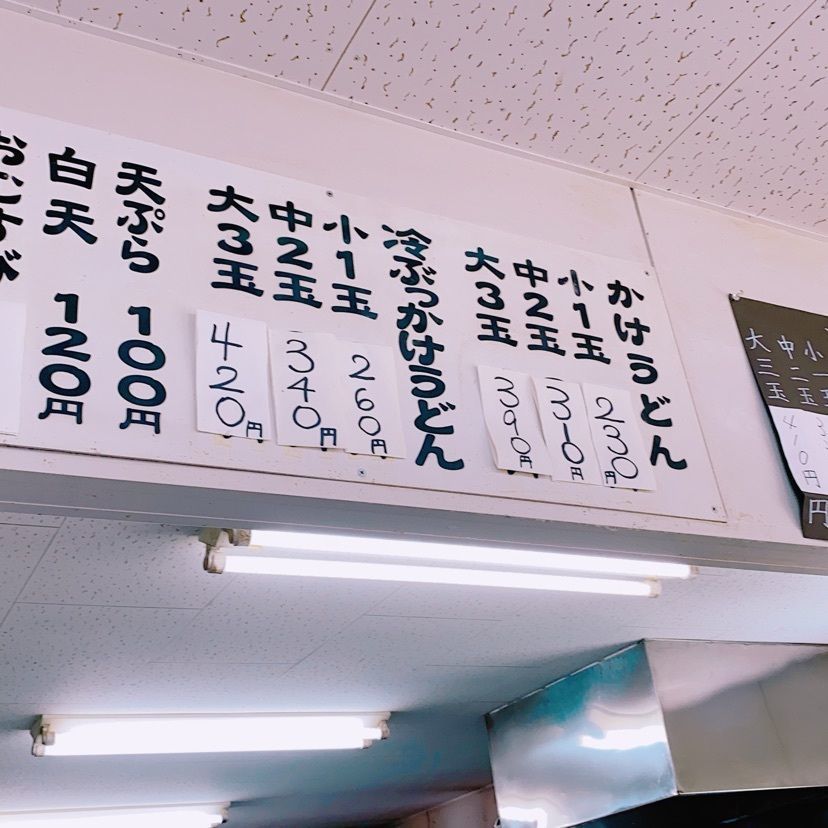 かけうどん
小1玉 230円
中2玉 310円
大3玉 390円
冷ぶっかけうどん
小1玉 260円
中2玉 340円
大3玉 420円
天ぷら 100円
白天 120円
おむすび
中二玉
大三玉 410円
円